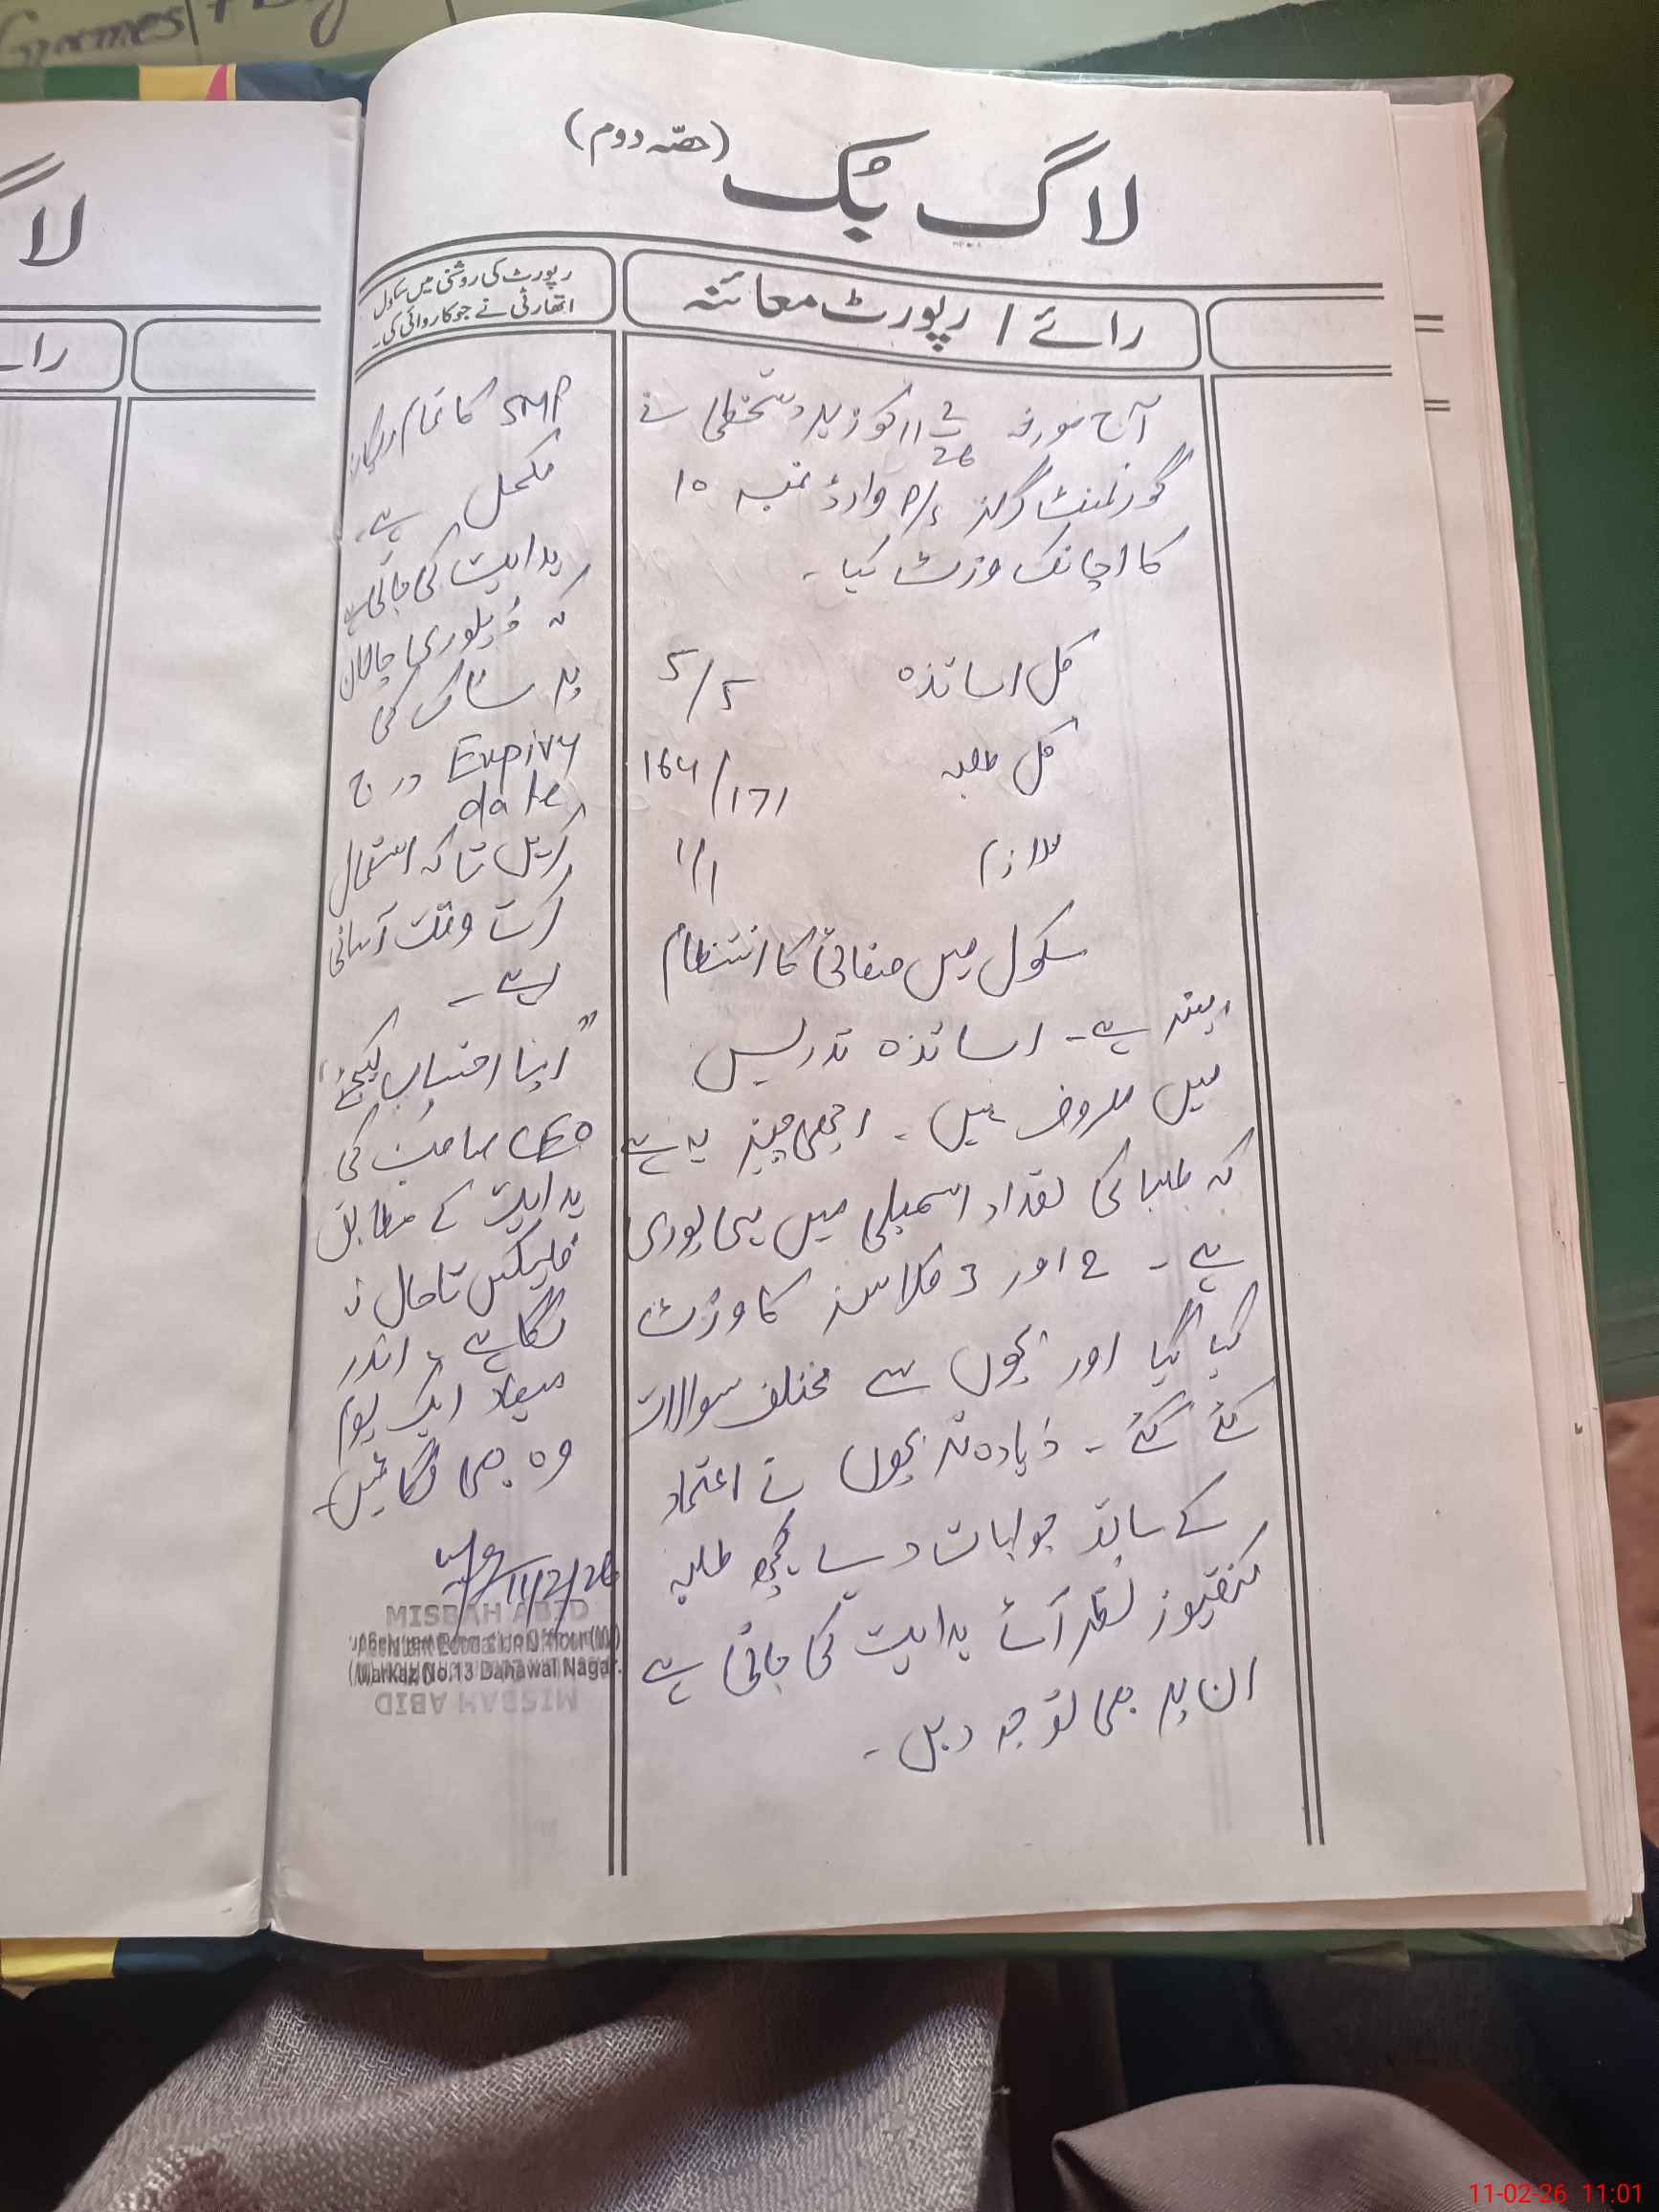 Games
لاگ بک (حصہ دوم)
رائے / رپورٹ معائنہ
آج مورخہ 11 2/26 کو زیر دستخطی نے
گورنمنٹ گرلز P/S وارڈ نمبر 10
کا اچانک وزٹ کیا -
کل اساتذہ 5/5
کل طلبہ 164/171
ملازم 1/1
سکول میں صفائی کا انتظام
بہتر ہے - اساتذہ تدریس
میں مصروف ہیں - اچھی چیز یہ ہے
کہ طلبا کی تعداد اسمبلی میں ہی پوری
ہے - 2 اور 3 کلاسز کا وزٹ
کیا گیا اور بچوں سے مختلف سوالات
کئے گئے - زیادہ تر بچوں نے اعتماد
کے ساتھ جوابات دیے کچھ طلبہ
کنفیوز نظر آئے ہدایت کی جاتی ہے
ان پر بھی توجہ دیں -
رپورٹ کی روشنی میں سکول
اتھارٹی نے جو کاروائی کی۔
SMP کا تمام ریکارڈ
مکمل ہے -
ہدایت کی جاتی ہے
کہ ڈیلوری چالان
پر سٹاک کی
Expiry درج
date
کریں تاکہ استعمال
کرتے وقت آسانی
رہے -
"اپنا احتساب کیجئے"
CEO صاحب کی
ہدایت کے مطابق
فلیکس تاحال نہ
لگا ہے ، اندر
میعاد ایک یوم
وہ بھی لگائیں -
11/2/26
MISBAH ABID
Markaz No.13 Dahawal Nagar.
MISBAH ABID
لاگ
11-02-26 11:01